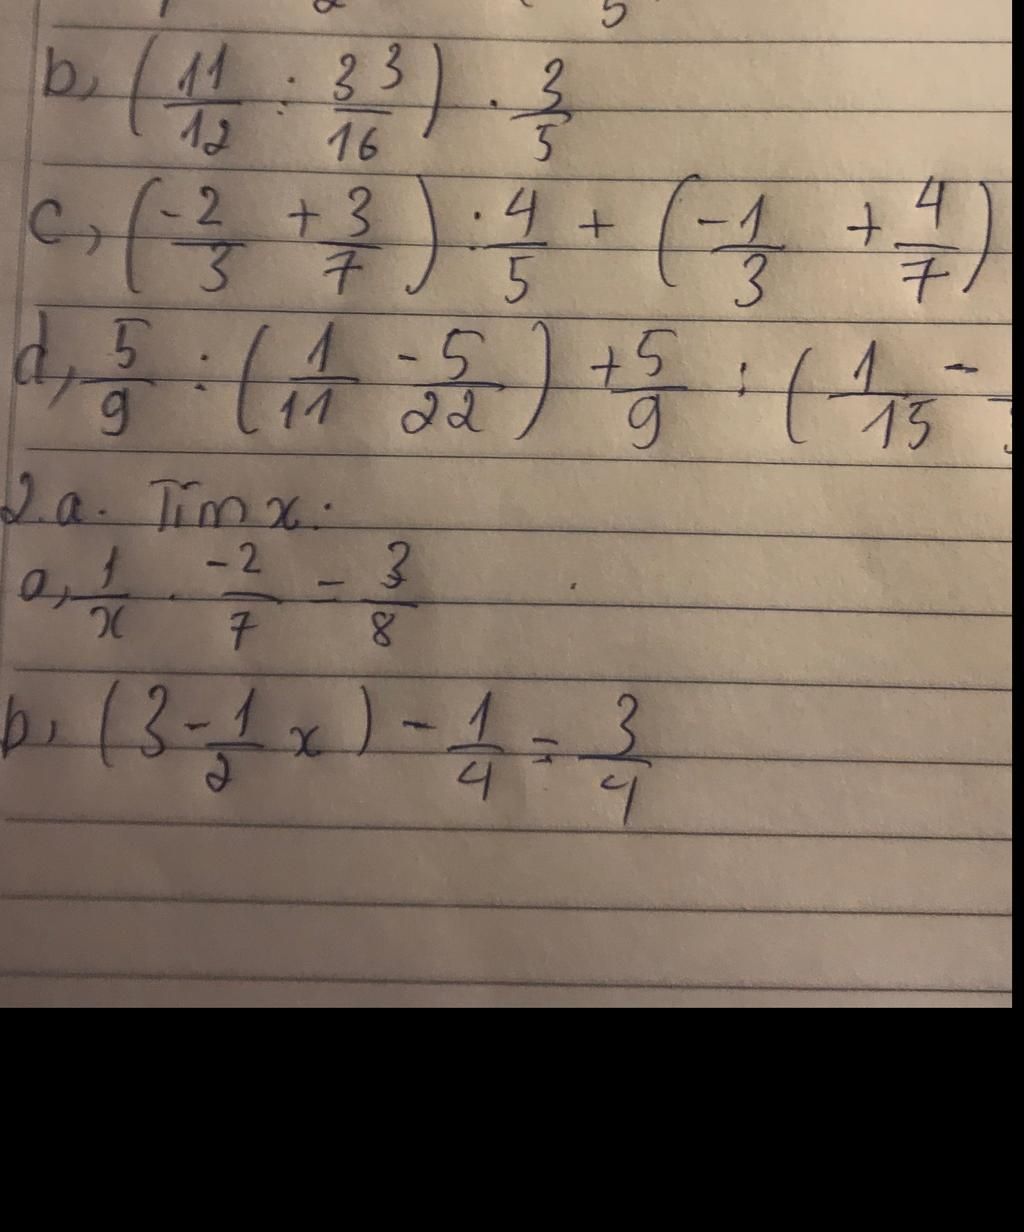 b, (11/12 : 33/16) . 3/5
c, (-2/3 + 3/7) . 4/5 + (-1/3 + 4/7)
d, 5/9 : (1/11 - 5/22) + 5/9 : (1/15 -
2.a. Tìm x.
a, 1/x . -2/7 = 3/8
b, (3 - 1/2 x) - 1/4 = 3/4